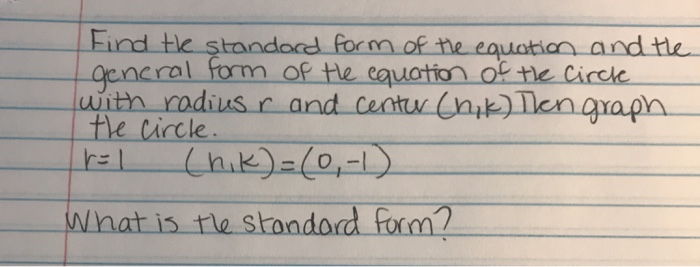 Find the standard form of the equation and the
general form of the equation of the circle
with radius r and center (h,k) Then graph
the circle.
r=1 (h,k)=(0,-1)
What is the standard form?